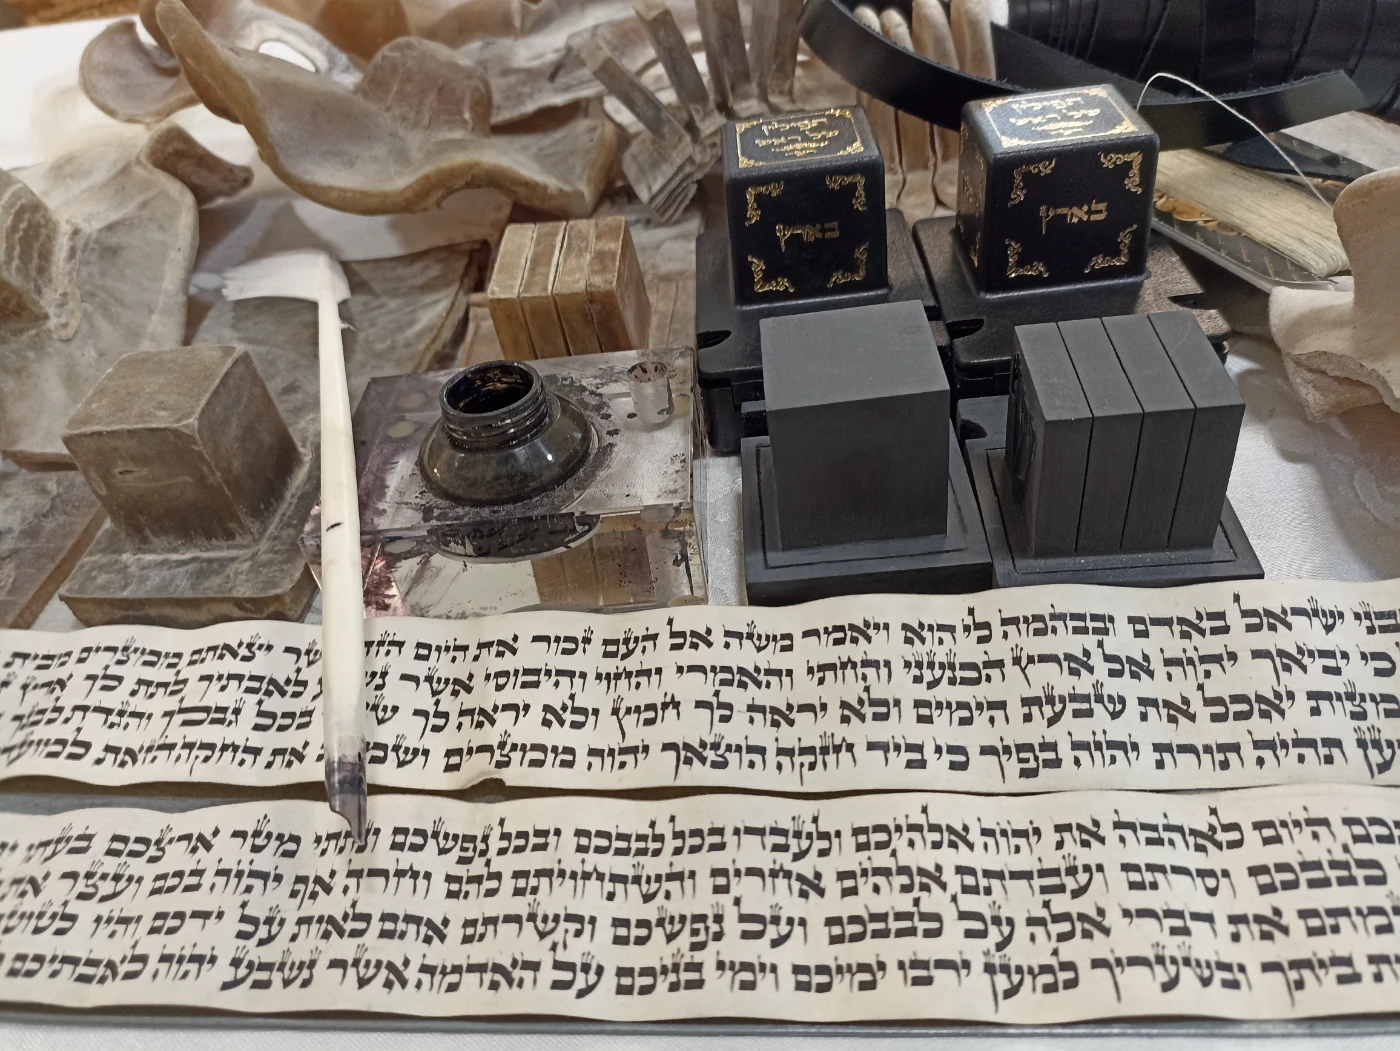 תפילין
של ראש
תפילין
של ראש
בני ישראל באדם ובבהמה לי הוא ויאמר משה אל העם זכור את היום הזה אשר יצאתם ממצרים מבית
כי יביאך יהוה אל ארץ הכנעני והחתי והאמרי והחוי והיבוסי אשר לאבתיך לתת לך ארץ
מצות יאכל את שבעת הימים ולא יראה לך חמץ ולא יראה לך בכל גבלך והגדת לבנך
תהיה תורת יהוה בפיך כי ביד חזקה הוצאך יהוה ממצרים את החקה הזאת למועדה
היום לאהבה את יהוה אלהיכם ולעבדו בכל לבבכם ובכל נפשכם ונתתי מטר ארצכם בעתו
לבבכם וסרתם ועבדתם אלהים אחרים והשתחויתם להם וחרה אף יהוה בכם ועצר את
את דברי אלה על לבבכם ועל נפשכם וקשרתם אתם לאות על ידכם והיו
ביתך ובשעריך למען ירבו ימיכם וימי בניכם על האדמה אשר נשבע יהוה לאבתיכם